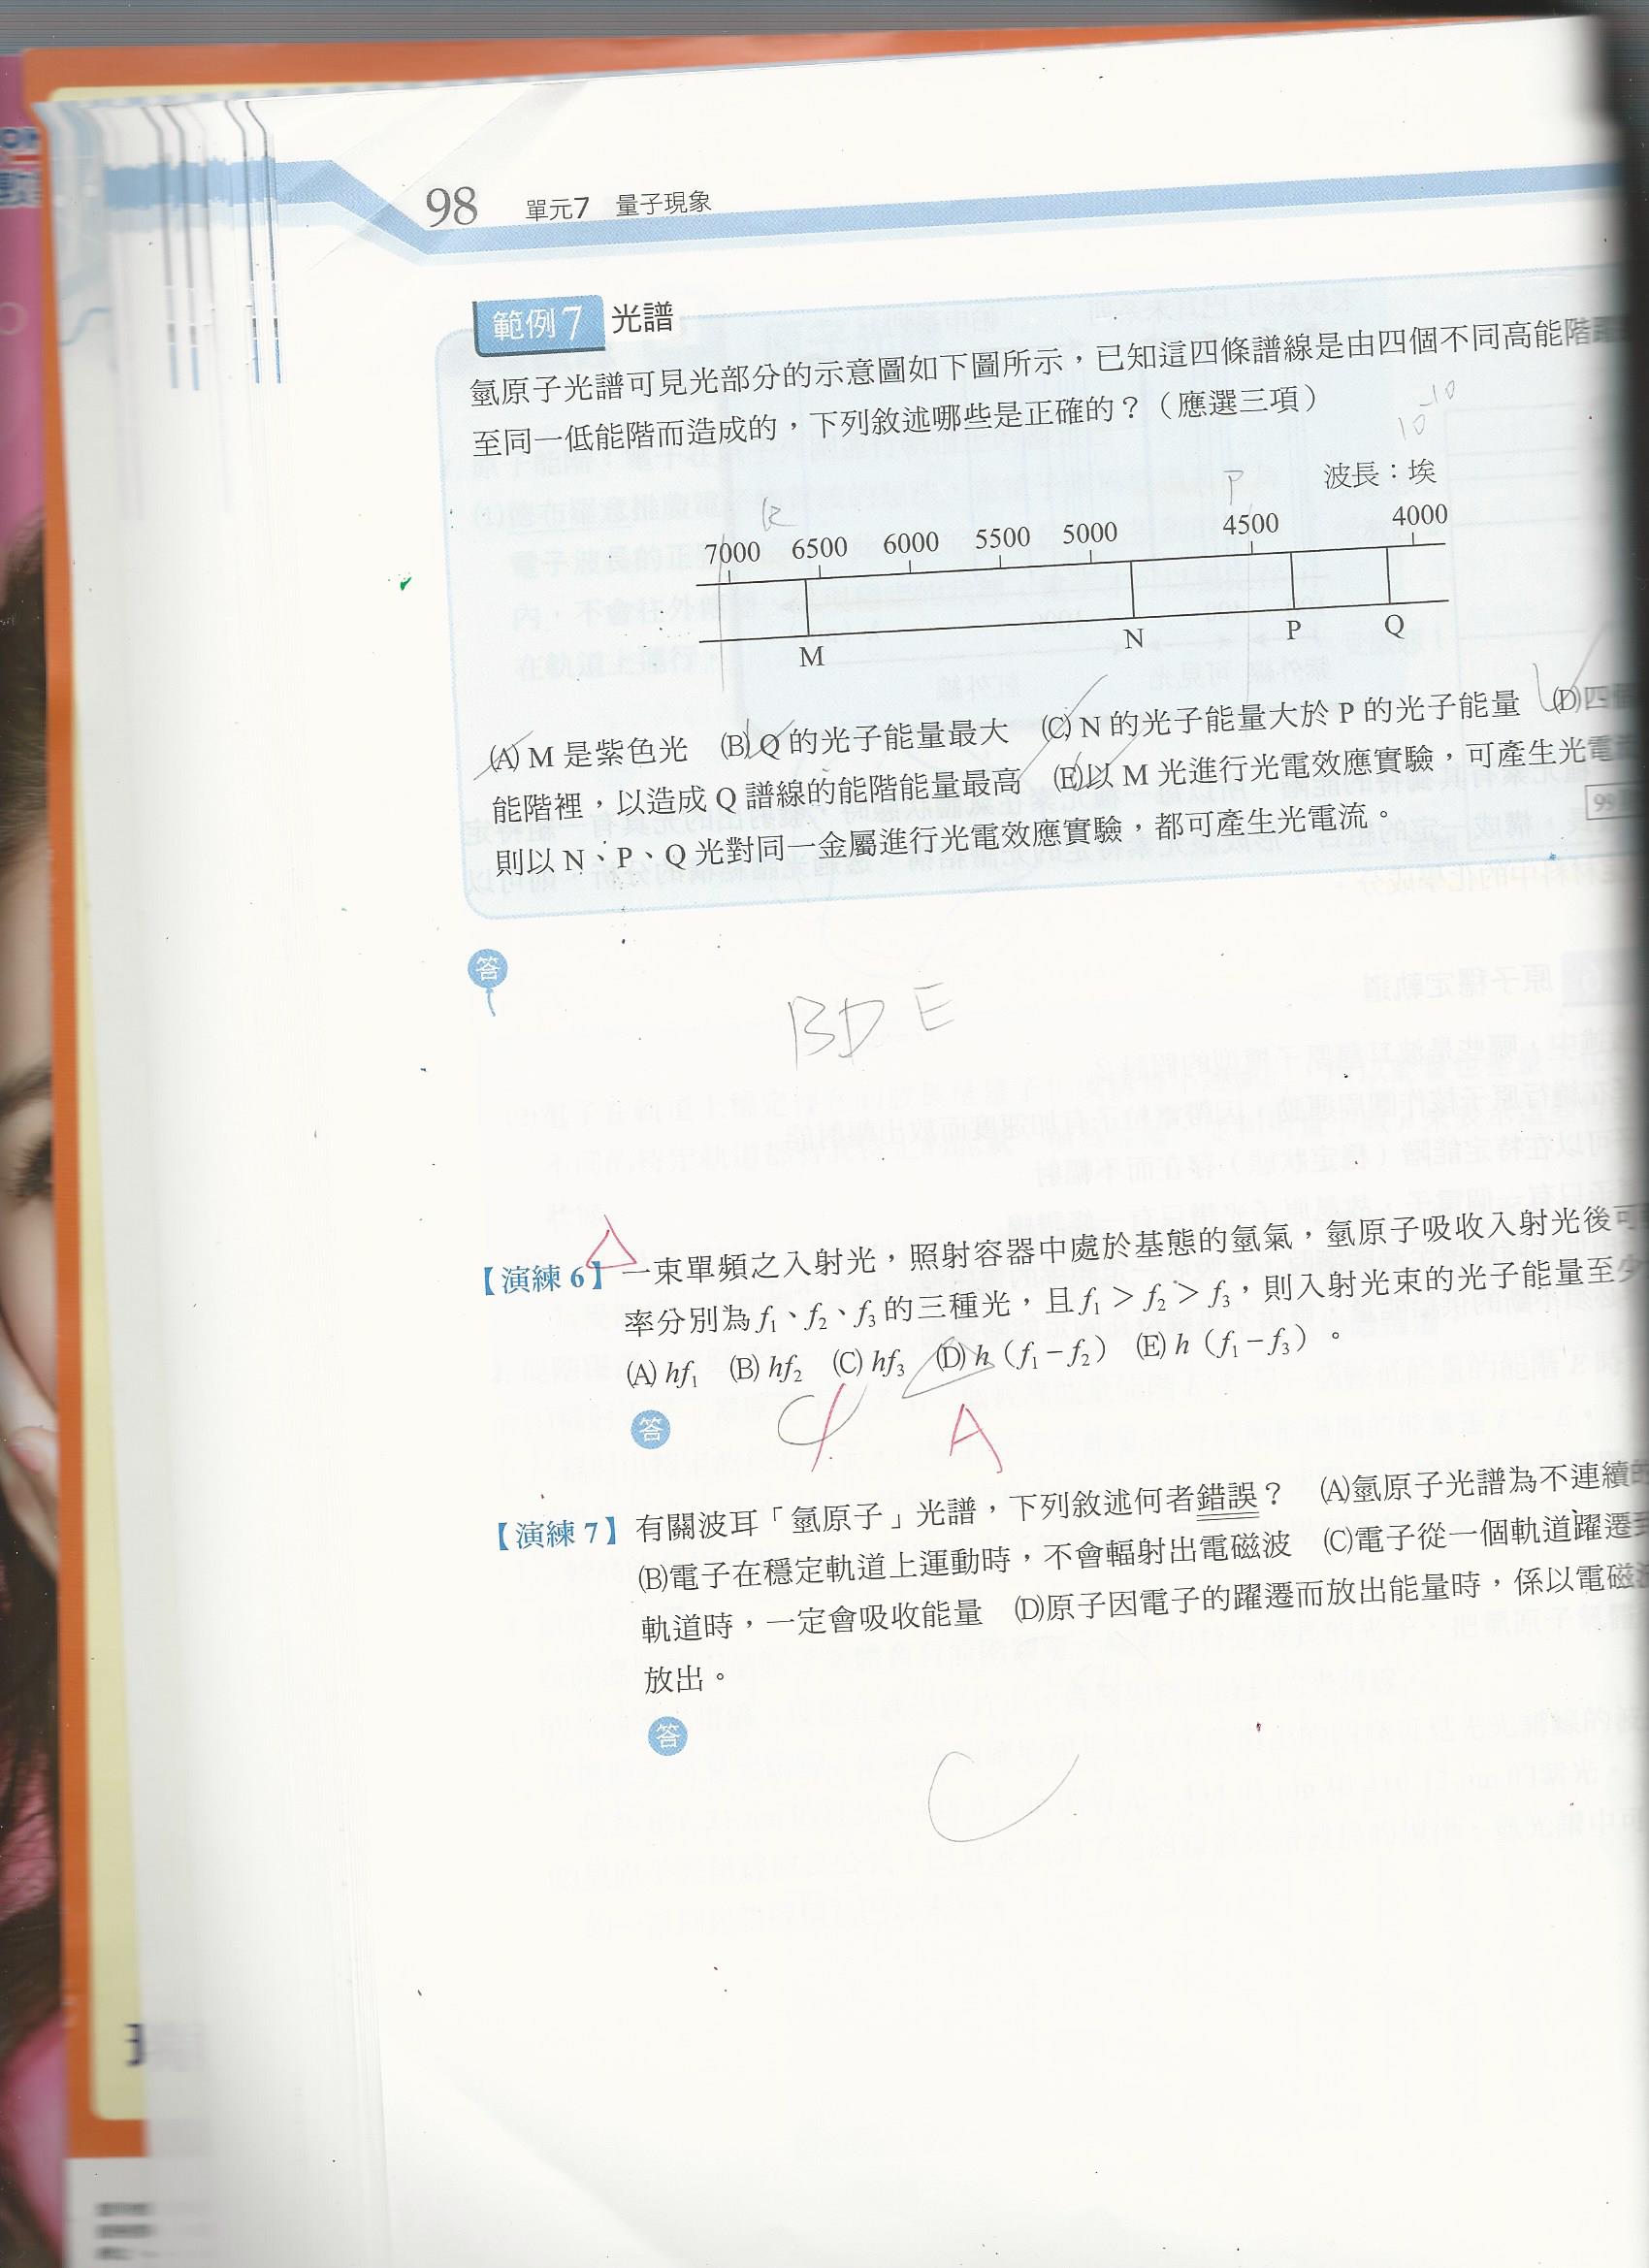 98 單元7 量子現象
範例7 光譜
氫原子光譜可見光部分的示意圖如下圖所示，已知這四條譜線是由四個不同高能階
至同一低能階而造成的，下列敘述哪些是正確的？（應選三項）
10⁻¹⁰
波長：埃
P
7000 6500 6000 5500 5000 4500 4000
M N P Q
(A) M 是紫色光 (B) Q 的光子能量最大 (C) N 的光子能量大於 P 的光子能量 (D)四個
能階裡，以造成 Q 譜線的能階能量最高 (E)以 M 光進行光電效應實驗，可產生光電
99
則以 N、P、Q 光對同一金屬進行光電效應實驗，都可產生光電流。
答
BDE
【演練 6】一束單頻之入射光，照射容器中處於基態的氫氣，氫原子吸收入射光後可
率分別為 f₁、f₂、f₃ 的三種光，且 f₁＞f₂＞f₃，則入射光束的光子能量至少
(A) hf₁ (B) hf₂ (C) hf₃ (D) h（f₁－f₂） (E) h（f₁－f₃）。
答 C A
【演練 7】有關波耳「氫原子」光譜，下列敘述何者錯誤？ (A)氫原子光譜為不連續的
(B)電子在穩定軌道上運動時，不會輻射出電磁波 (C)電子從一個軌道躍遷到
軌道時，一定會吸收能量 (D)原子因電子的躍遷而放出能量時，係以電磁波
放出。
答
C